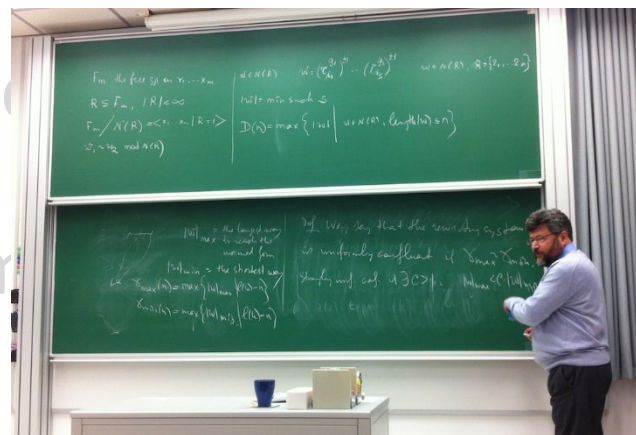 F_m the free gp. on x_1, ... x_m
R ⊆ F_m, |R| < ∞
F_m / N(R) = <x_1 ... x_m | R = 1>
w_1 ~ w_2 mod N(R)
w ∈ N(R)
|w| = min such s
D(n) = max { |w| | w ∈ N(R), length(w) ≤ n }
w ∈ N(R), R = {
|w|max = the longest way
to reach the
normal form
|w|min = the shortest way
γmax(n) = max { |w|max | l(w) = n }
γmin(n) = max { |w|min | l(w) = n }
Def. We say that the rewriting system
is uniformly confluent if γmax ~ γmin.
∃ C > 1. |w|max < C |w|min